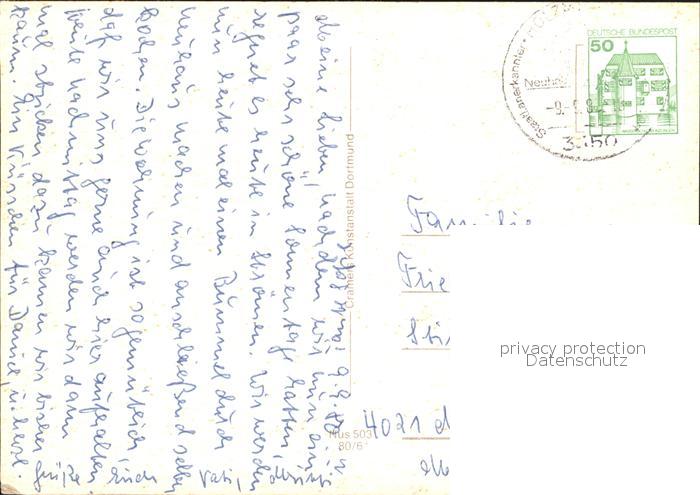 9.9.82
Meine Lieben, nachdem wir nun einige
paar sehr schöne Sonnentage hatten,
regnet es heute in Strömen. Wir werden
nun heute mal einen Bummel durch
Neuhaus machen und anschließend selber
kochen. Die Wohnung ist so gemütlich,
daß wir uns gerne auch hier aufhalten.
Heute nachmittag werden wir dann
mal sticken, dazu kamen wir bisher
kaum. Ein Küsschen für Daniel, u. herzl.
Grüße
Vati,
Cramers Kunstanstalt Dortmund
Nus 503
80/6
Staatl. anerkannter
HOLZM
Neuhaus
3450
DEUTSCHE BUNDESPOST
50
Familie
Frie
4021
privacy protection
Datenschutz